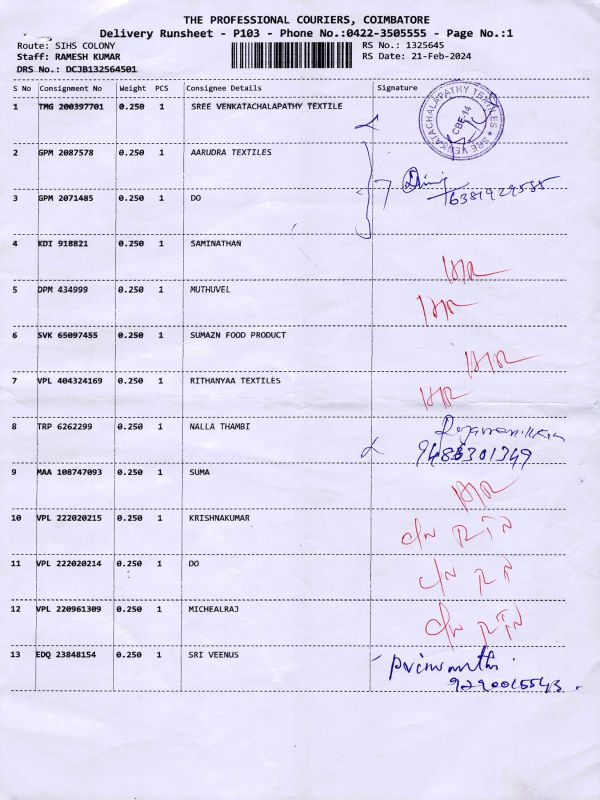 THE PROFESSIONAL COURIERS, COIMBATORE
Delivery Runsheet - P103 - Phone No.:0422-3505555 - Page No.:1
Route: SIHS COLONY RS No.: 1325645
Staff: RAMESH KUMAR RS Date: 21-Feb-2024
DRS No.: DCJB132564501
S No Consignment No Weight PCS Consignee Details Signature
1 TMG 200397701 0.250 1 SREE VENKATACHALAPATHY TEXTILE
SREE VENKATACHALAPATHY TEXTILES
CBE-14
2 GPM 2087578 0.250 1 AARUDRA TEXTILES
3 GPM 2071485 0.250 1 DO 6381929585
4 KDI 918821 0.250 1 SAMINATHAN
5 DPM 434999 0.250 1 MUTHUVEL
6 SVK 65097455 0.250 1 SUMAZN FOOD PRODUCT
7 VPL 404324169 0.250 1 RITHANYAA TEXTILES
8 TRP 6262299 0.250 1 NALLA THAMBI
9 MAA 108747093 0.250 1 SUMA
10 VPL 222020215 0.250 1 KRISHNAKUMAR
11 VPL 222020214 0.250 1 DO
12 VPL 220961309 0.250 1 MICHEALRAJ
13 EDQ 23848154 0.250 1 SRI VEENUS
9290015543